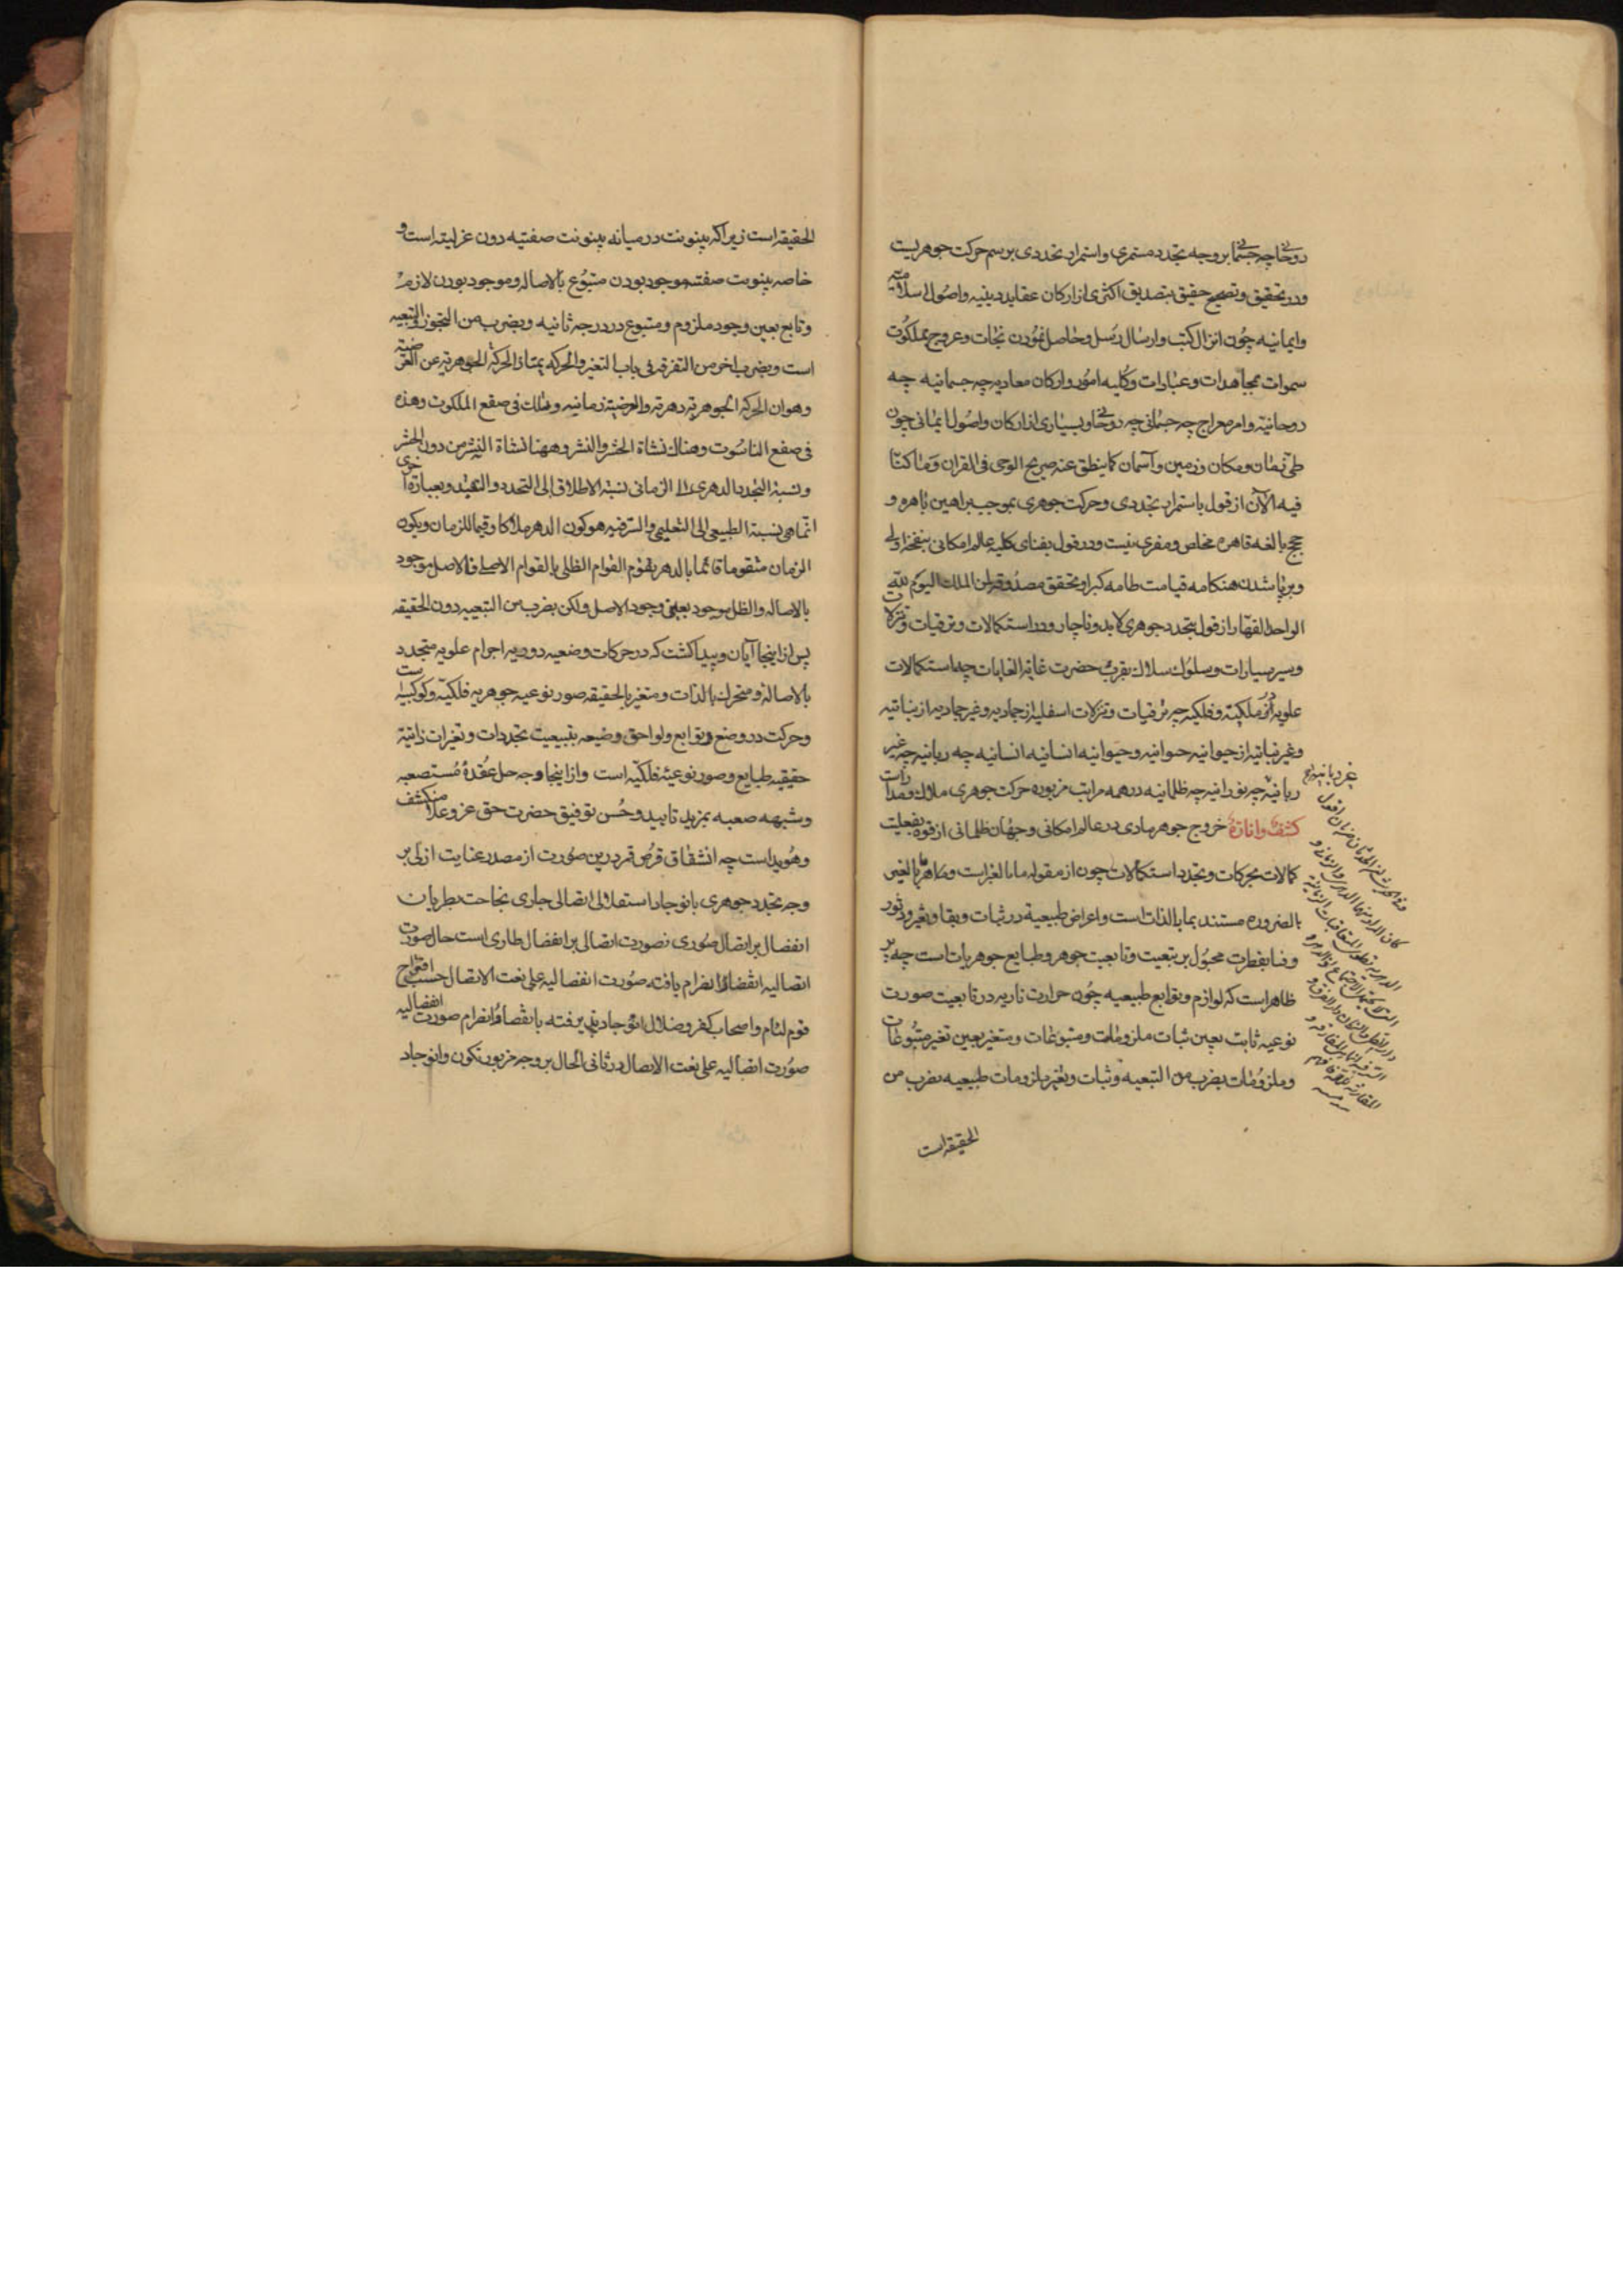 روحانی چه جسمانی بر وجه تجدد مستمری و استمرار تجددی برسم حرکت جوهریست
و در تحقیق و تصحیح حقیق بتصدیق اکثری از ارکان عقاید دینیه و اصول اسلامیه
و ایمانیه چون انزال کتب و ارسال رسل و حاصل نمودن نجات و عروج بملکوت
سموات بمجاهدات و عبادات و کلیه امور و ارکان معادیه چه جسمانیه چه
روحانیه و امر معراج چه جسمانی چه روحانی و بسیاری از ارکان و اصول ایمانی چون
طی زمان و مکان و زمین و آسمان کما ینطق عنه صریح الوحی فی القران و ما کنا
فیه الآن از قول باستمرار تجددی و حرکت جوهری بموجب براهین باهره و
حجج بالغه قاهره مخلص و مفری نیست و در قول بفنای کلیه عالم امکانی بنفخه اولی
و برپا شدن هنکامه قیامت طامه کبرا و تحقق مصدوقه لمن الملک الیوم لله
الواحد القهار از قول بتجدد جوهری لابد و ناچار و در استکمالات و ترقیات و تنزلات
و سیر سیارات و سلوک سلاک بقرب حضرت غایة الغایات چه استکمالات
علویه از ملکیه و فلکیه چه ترقیات و تنزلات اسفلیه از جمادیه و غیر جمادیه از نباتیه
و غیر نباتیه از حیوانیه حیوانیه و حیوانیه انسانیه انسانیه چه ربانیه چه غیر
ربانیه چه نورانیه چه ظلمانیه در همه مراتب مزبوره حرکت جوهری ملاک و مدارات
کشف و انارة خروج جوهر مادی در عالم امکانی و جهان ظلمانی از قوه بفعلیت
کمالات بحرکات و تجدد استکمالات چون از مقوله ما بالغیر است و ما هو بالغیر
بالضروره مستند بما بالذات است و اعراض طبیعیة در ثبات و بقا و تغیر و دثور
و فنا بفطرت مجبول بر تبعیت و تابعیت جوهر و طبایع جوهریات است چه پر
ظاهر است که لوازم و توابع طبیعیه چون حرارت ناریه در تابعیت صورت
نوعیه ثابت بعین ثبات ملزومات و متبوعات و متغیر بعین تغیر متبوعات
و ملزومات بضرب من التبعیه و ثبات و تغیر ملزومات طبیعیه بضرب من
الحقیقه است
الحقیقه است زیرا که بینونت در میانه بینونت صفتیه دون عزلیته است و
خاصه بینونت صفتیه موجود بودن متبوع بالاصاله و موجود بودن لازم
و تابع بعین وجود ملزوم و متبوع در درجه ثانیه و بضرب من التجوز و التبعیه
است و بضرب اخر من التفرقه فی باب التغیر و الحرکه یمتاز الحرکة الجوهریه عن العرضیة
و هو ان الحرکه الجوهریه دهریه و العرضیة زمانیه و تلک فی صقع الملکوت و هذه
فی صقع الناسوت و هناک نشاة الحشر و النشر و ههنا نشاة النشر من دون الحشر
و نسبة التجدد الدهری الی الزمانی نسبة الاطلاق الی التحدد و التقید و بعبارة اخری
انما هی نسبة الطبیعی الی التعلیمی و السر فیه هو کون الدهر ملاکا و قیما للزمان و یکون
الزمان متقوما قائما بالدهر تقوم القوام الظلی بالقوام الاصلی فالاصل موجود
بالاصاله و الظل موجود بعین وجود الاصل ولکن بضرب من التبعیه دون الحقیقه
پس از اینجا آیان و پیدا کشت که در حرکات وضعیه دوریه اجرام علویه متجدد
بالاصالة و متحرک بالذات و متغیر بالحقیقه صور نوعیه جوهریه فلکیه و کوکبیه است
و حرکت در وضع و توابع و لواحق وضیعه بتبیعیت تجددات و تغیرات ذاتیة
حقیقیه طبایع و صور نوعیة فلکیه است و از اینجا وجه حل عقدة مستصعبه
و شبهه صعبه بمزید تایید و حسن توفیق حضرت حق عز و علا منکشف
و هویداست چه انشقاق قرص قمر درین صورت از مصدر عنایت ازلی بر
وجه تجدد جوهری بانوجاد استقلالی اتصالی جاری بجاحت بطریان
انفصال بر اتصال صوری نصورت اتصالی بر انفصال طاری است حال صورت
اتصالیه انقضا و انصرام یافته صورت انفصالیه علی نعت الاتصال حسب اقتراح
قوم لئام و اصحاب کفر و ضلال انوجاد پذیرفته بانقضا و انصرام صورت انفصالیه
صورت اتصالیه علی نعت الاتصال در ثانی الحال بر وجه مزبور تکون و انوجاد